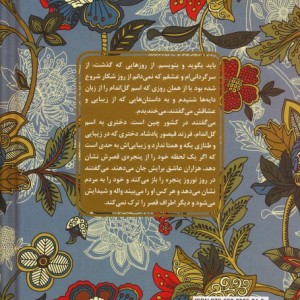 باید بگوید و بنویسم از روزهایی که گذشت، از
سرگردانی‌ام و عشقم که نمی‌دانم از روز شکار شروع
شده بود یا از همان روزی که اسم گل‌اندام را از زبان
دایه‌ها شنیدم و به داستان‌هایی که از زیبایی و
عشاقش می‌گفتند، می‌خندیدم.
می‌گفتند در کشور چین است دختری به اسم
گل‌اندام، فرزند فیغور پادشاه. دختری که در زیبایی
و طنازی یکه و همتا ندارد و زیبایی‌اش به حدی است
که اگر یک لحظه خود را از پنجره‌ی قصرش نشان
دهد، هزاران عاشق برایش جان می‌دهند. می‌گفتند
در روز نوروز پنجره را باز می‌کند و خود را به مردم
نشان می‌دهد و هر کس او را می‌بیند واله و شیدایش
می‌شود و دیگر اطراف قصر را ترک نمی‌کند.